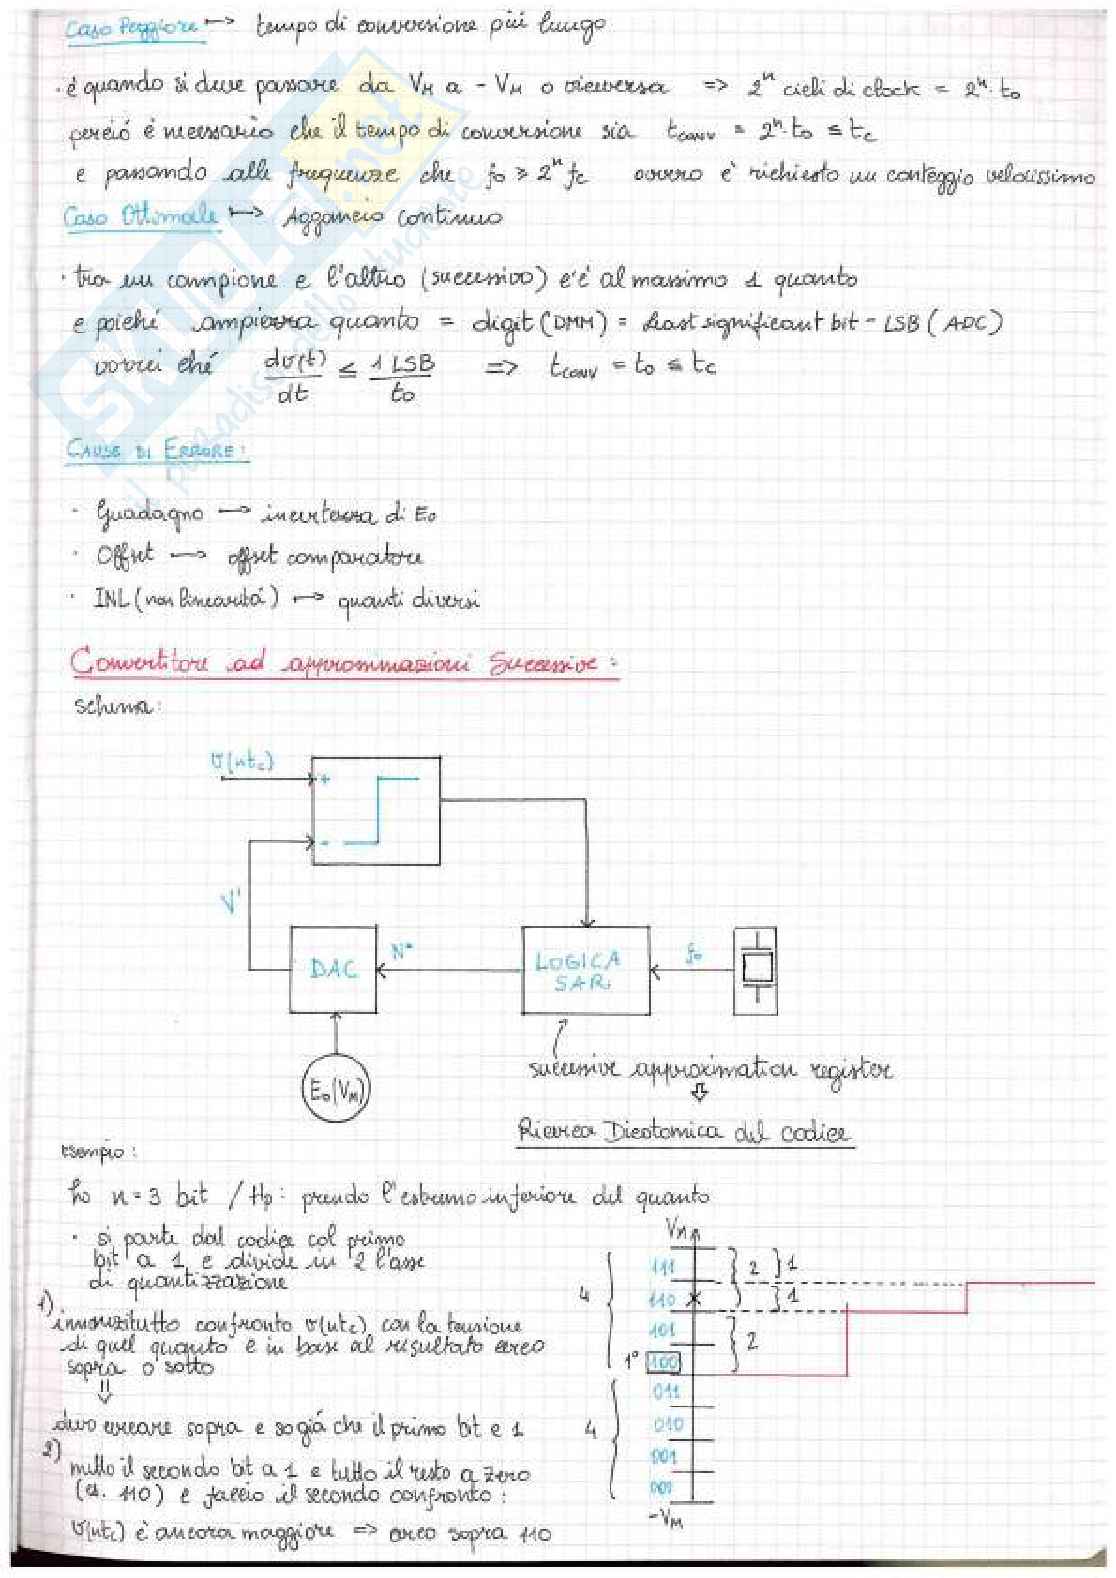 Caso Peggiore → tempo di conversione più lungo
· é quando si deve passare da VM a - VM o viceversa => 2ⁿ cicli di clock = 2ⁿ· to
perció é necessario che il tempo di conversione sia tconv = 2ⁿ·to ≤ tc
e passando alle frequenze che fo ≥ 2ⁿ fc ovvero e' richiesto un conteggio velocissimo
Caso Ottimale → Aggancio continuo
· tra un campione e l'altro (successivo) c'é al massimo 1 quanto
e poiché ampiezza quanto = digit (DMM) = least significant bit - LSB (ADC)
vorrei ché dv(t)/dt ≤ 1 LSB/to => tconv = to ≤ tc
CAUSE DI ERRORE:
· Guadagno → incertezza di Eo
· Offset → offset comparatore
· INL (non linearitá) → quanti diversi
Convertitore ad approssimazioni Successive:
schema:
v(ntc)
+
-
V'
DAC
N*
LOGICA
SAR
fo
Eo(VM)
successive approximation register
⇓
Ricerca Dicotomica del codice
esempio:
ho n = 3 bit / Hp: prendo l'estremo inferiore del quanto
· si parte dal codice col primo
bit a 1 e divide in 2 l'asse
di quantizzazione
1) innanzitutto confronto v(ntc) con la tensione
di quel quanto e in base al risultato cerco
sopra o sotto
⇓
devo cercare sopra e so giá che il primo bit e 1
2) metto il secondo bit a 1 e tutto il resto a zero
(es. 110) e faccio il secondo confronto:
v(ntc) é ancora maggiore => cerco sopra 110
VM
111
110
101
1° 100
011
010
001
000
-VM
4
4
2
2
1
1
SKUOLA.net
il paradiso dello studente